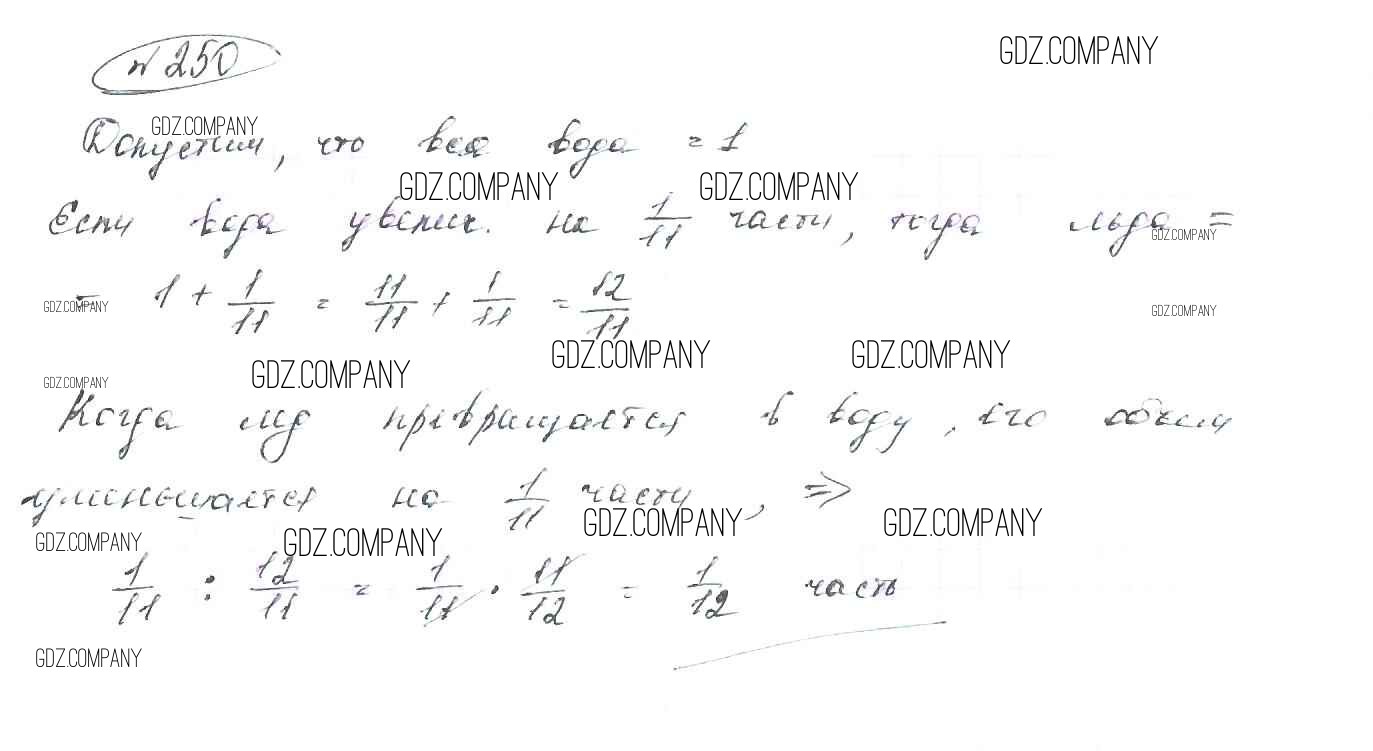 № 250
GDZ.COMPANY
GDZ.COMPANY
Допустим, что вся вода = 1
GDZ.COMPANY GDZ.COMPANY
Если вода увелич. на 1/11 части, тогда льда =
GDZ.COMPANY
= 1 + 1/11 = 11/11 + 1/11 = 12/11
GDZ.COMPANY GDZ.COMPANY
GDZ.COMPANY GDZ.COMPANY
GDZ.COMPANY GDZ.COMPANY
Когда лёд превращается в воду, его объем
уменьшается на 1/11 часть, =>
GDZ.COMPANY GDZ.COMPANY
GDZ.COMPANY GDZ.COMPANY
1/11 : 12/11 = 1/11 · 11/12 = 1/12 часть
GDZ.COMPANY